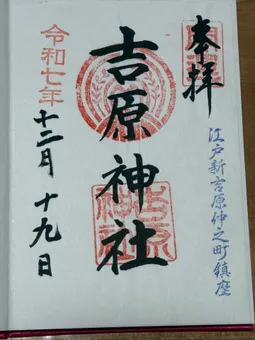 奉拝
江戸新吉原仲之町鎮座
吉原神社
吉原神社
令和七年
十二月十九日